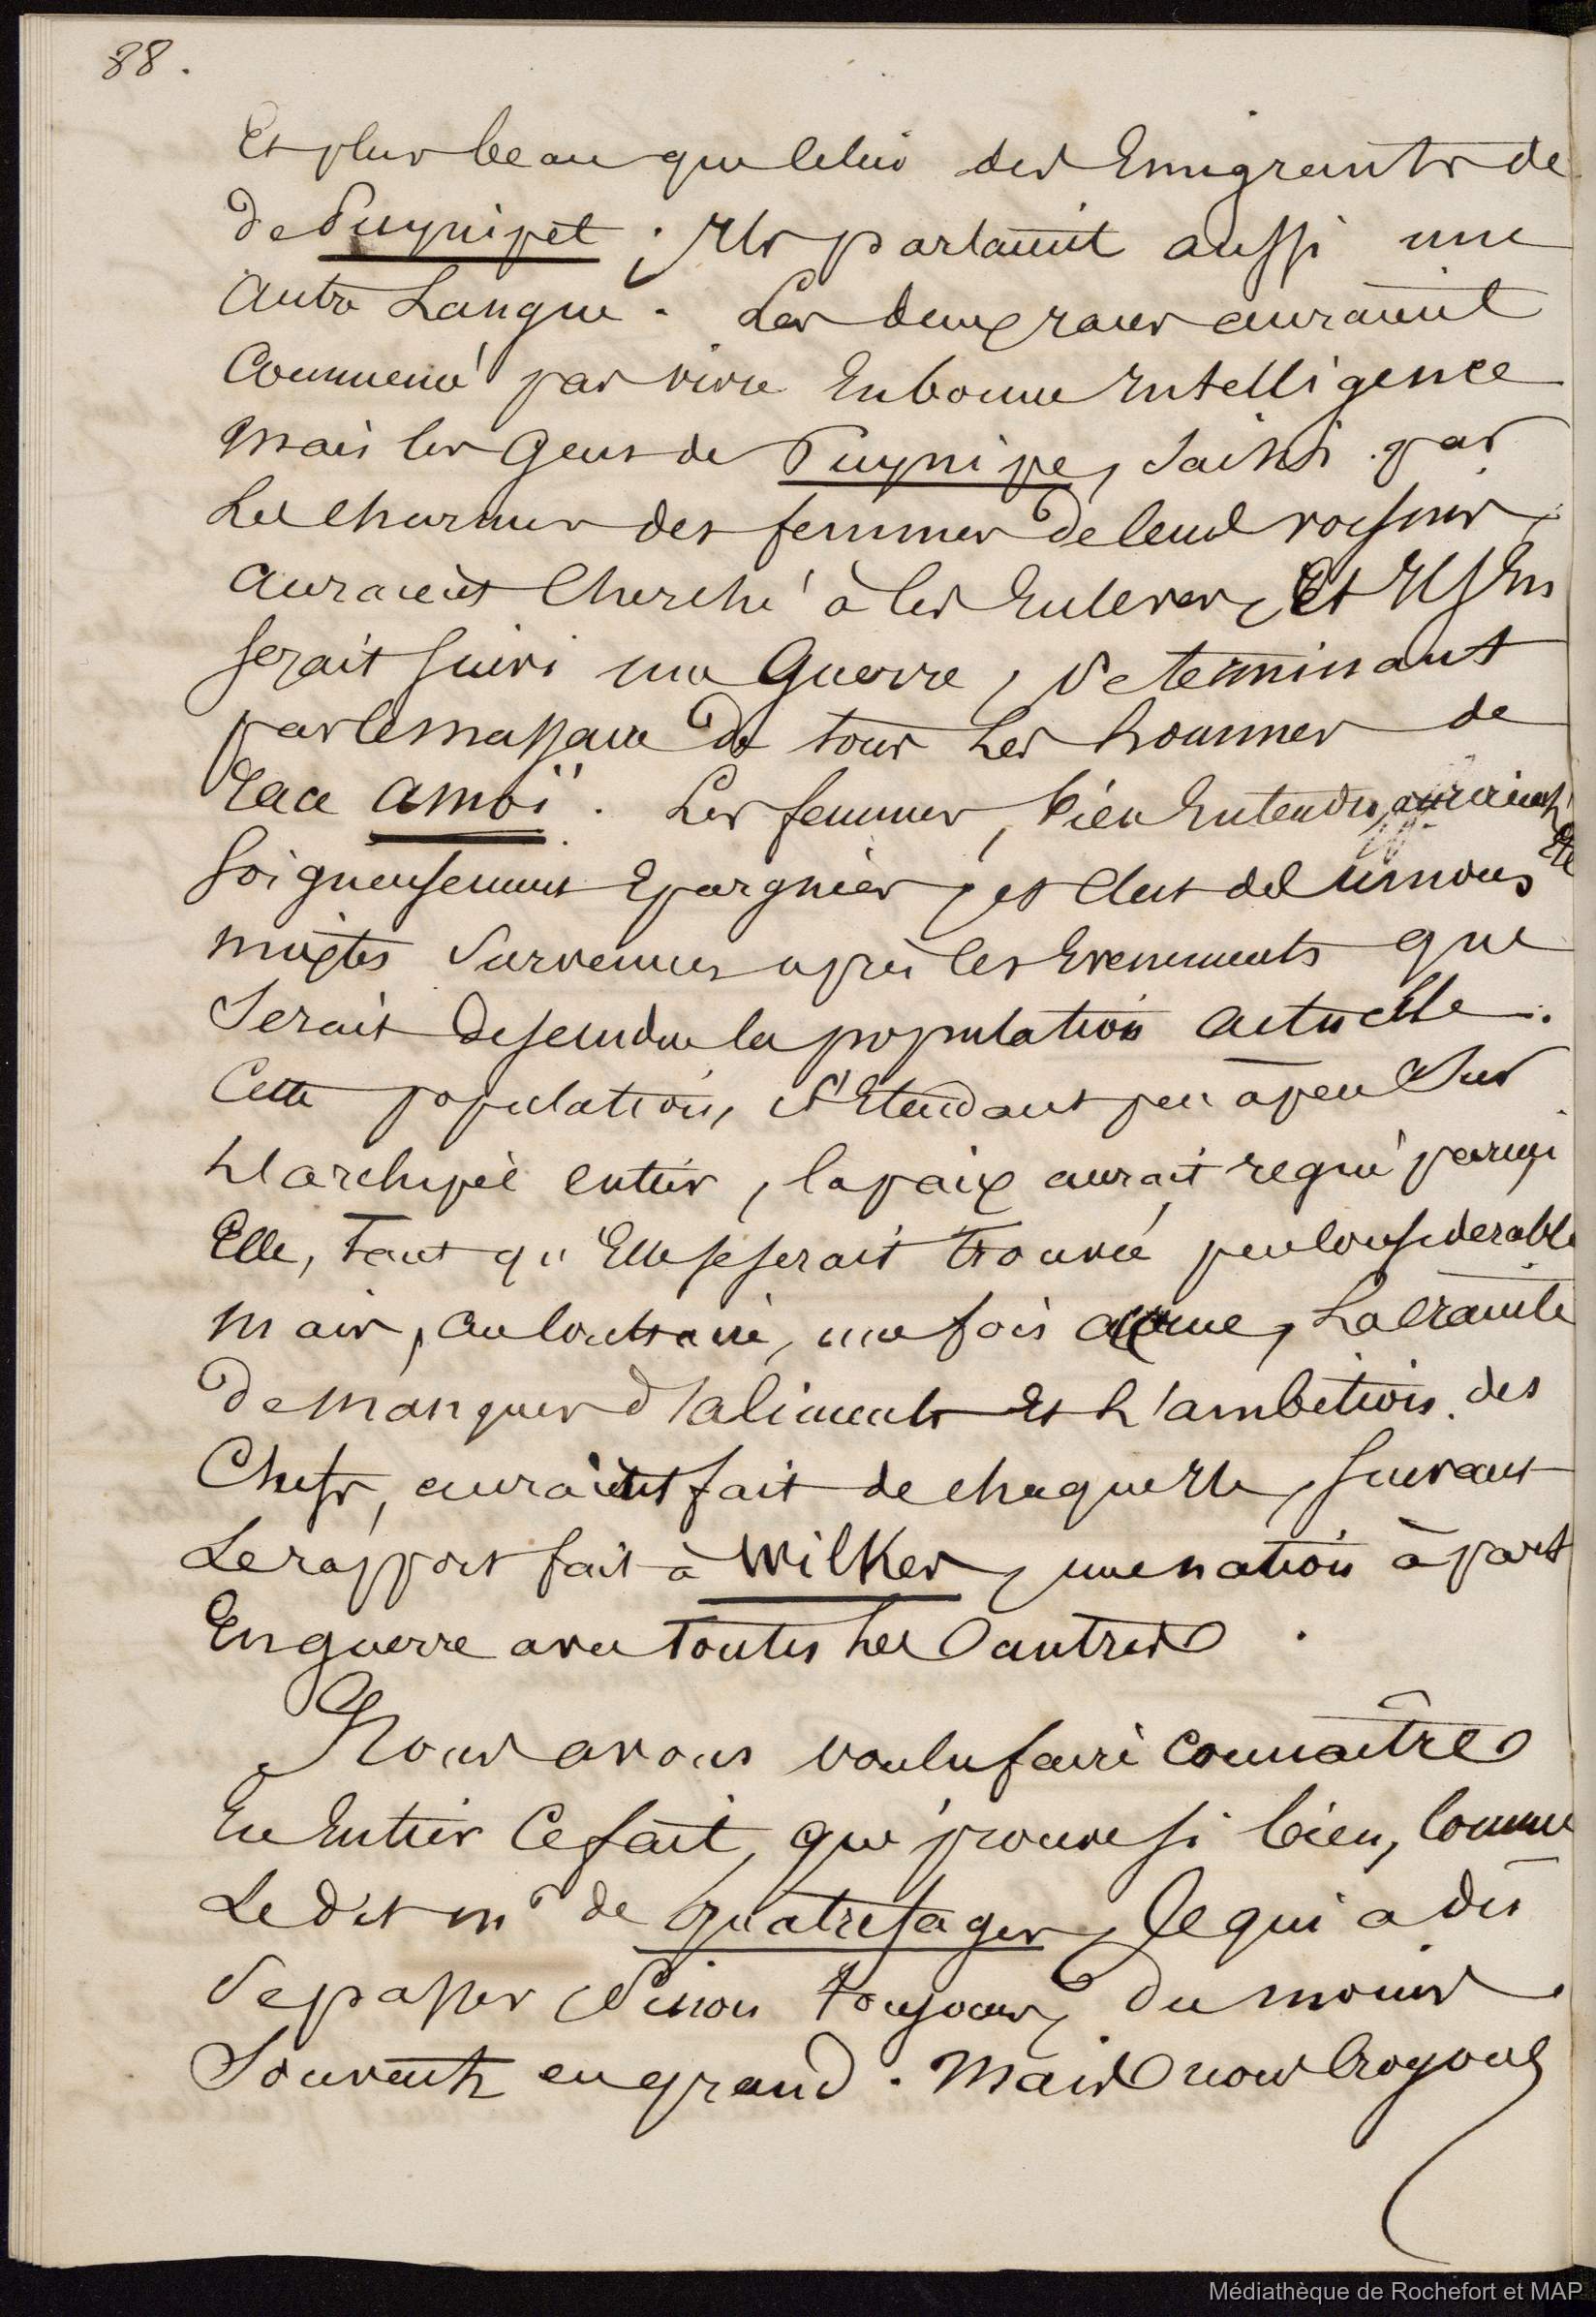 88.
Et plus beau que celui des Emigrants de
de Puynipet ; Ils parlaient aussi une
autre Langue. Les deux races auraient
Commencé par vivre En bonne Intelligence
Mais les Gens de Puynipe, Saisis par
Les charmes des femmes de leurs voisins,
auraient Cherché à les Enlever, Et Il s'En
serait suivi une Guerre, se terminant
par le massacre de tous Les hommes de
race amoï. Les femmes, bien Entendu, auraient Été
Soigneusement Epargnées, et c'est de unions
mixtes Survenues après les Evenements que
Serait descendue la population actuelle.
Cette population, s'Etendant peu à peu Sur
L'archipel entier, la paix aurait regné parmi
Elle, tant qu'Elle se serait trouvée peu considerable
Mais, au contraire, une fois accrue, La crainte
de Manquer d'aliments Et L'ambition des
Chefs, auraient fait de chaque Ile, suivant
Le rapport fait à Wilkes, une nation à part
En guerre avec toutes Les autres.
Nous avons voulu faire connaître
En Entier Ce fait, qui prouve si bien, comme
Le dit mr de quatrefages, Ce qui a dû
Se passer Sinon toujours, du moins
Souvent, en grand. Mais nous croyons
Médiathèque de Rochefort et MAP